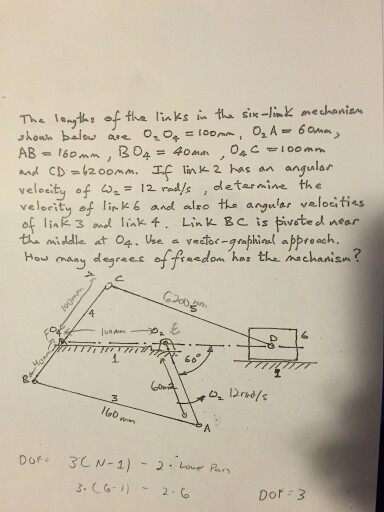 The lengths of the links in the six-link mechanism
shown below are O₂O₄ = 100mm, O₂A = 60mm,
AB = 160mm, BO₄ = 40mm, O₄C = 100mm
and CD = 6200mm. If link 2 has an angular
velocity of ω₂ = 12 rad/s, determine the
velocity of link 6 and also the angular velocities
of link 3 and link 4. Link BC is pivoted near
the middle at O4. Use a vector-graphical approach.
How many degrees of freedom has the mechanism?
C
100mm
4
6200mm
5
O4
100mm
O2
D
6
40mm
1
60°
1
B
60mm
ω₂ 12rad/s
3
160mm
A
DOF= 3(N-1) - 2. Lower Pairs
3.(6-1) - 2.6
DOF=3